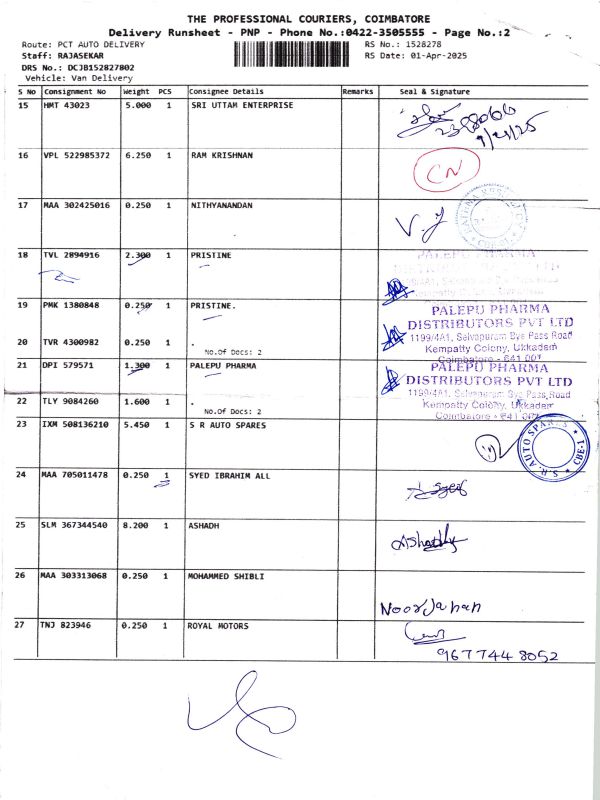 THE PROFESSIONAL COURIERS, COIMBATORE
Delivery Runsheet - PNP - Phone No.:0422-3505555 - Page No.:2
Route: PCT AUTO DELIVERY RS No.: 1528278
Staff: RAJASEKAR RS Date: 01-Apr-2025
DRS No.: DCJB152827B02
Vehicle: Van Delivery
S No Consignment No Weight PCS Consignee Details Remarks Seal & Signature
15 HMT 43023 5.000 1 SRI UTTAM ENTERPRISE
16 VPL 522985372 6.250 1 RAM KRISHNAN CN
17 MAA 302425016 0.250 1 NITHYANANDAN V.J
18 TVL 2894916 2.300 1 PRISTINE
PALEPU PHARMA
19 PMK 1380848 0.250 1 PRISTINE.
PALEPU PHARMA
DISTRIBUTORS PVT LTD
1199/4A1, Selvapuram Bye Pass Road
Kempatty Colony, Ukkadam
Coimbatore - 641 001
20 TVR 4300982 0.250 1 .
No.Of Docs: 2
21 DPI 579571 1.300 1 PALEPU PHARMA
PALEPU PHARMA
DISTRIBUTORS PVT LTD
1199/4A1, Selvapuram Bye Pass Road
Kempatty Colony, Ukkadam
Coimbatore - 641 001
22 TLY 9084260 1.600 1 .
No.Of Docs: 2
23 IXM 508136210 5.450 1 S R AUTO SPARES
S.R. AUTO SPARES CBE-1
24 MAA 705011478 0.250 1 SYED IBRAHIM ALL
25 SLM 367344540 8.200 1 ASHADH
26 MAA 303313068 0.250 1 MOHAMMED SHIBLI
Noorjahan
27 TNJ 823946 0.250 1 ROYAL MOTORS
9677448052